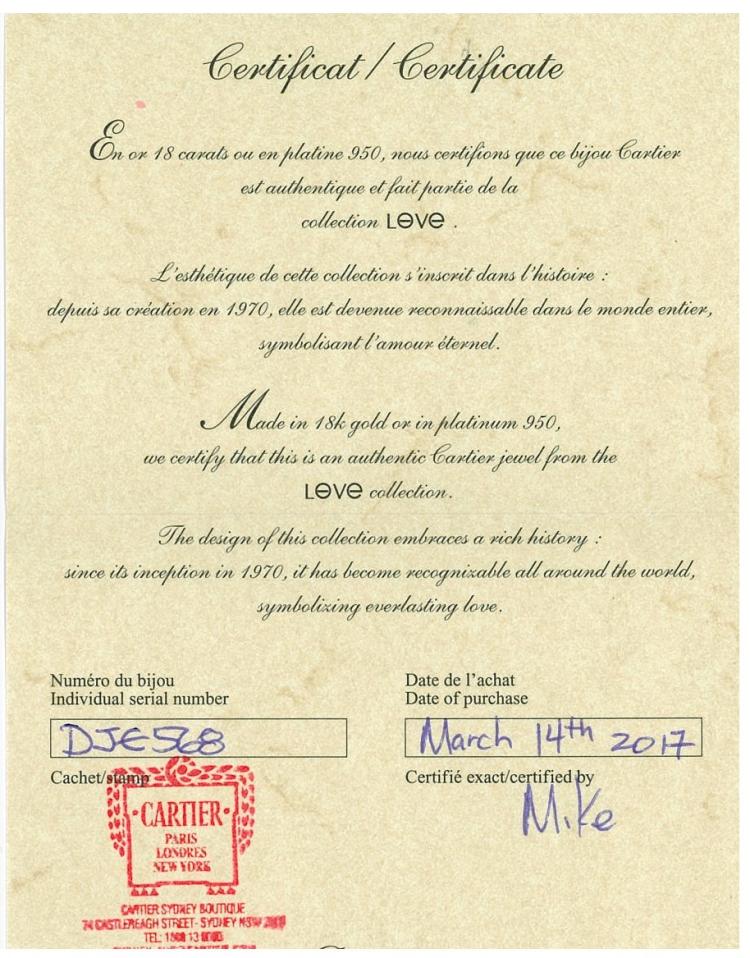 Certificat / Certificate
En or 18 carats ou en platine 950, nous certifions que ce bijou Cartier
est authentique et fait partie de la
collection LOVE .
L'esthétique de cette collection s'inscrit dans l'histoire :
depuis sa création en 1970, elle est devenue reconnaissable dans le monde entier,
symbolisant l'amour éternel.
Made in 18k gold or in platinum 950,
we certify that this is an authentic Cartier jewel from the
LOVE collection.
The design of this collection embraces a rich history :
since its inception in 1970, it has become recognizable all around the world,
symbolizing everlasting love.
Numéro du bijou
Individual serial number
DJE568
Date de l'achat
Date of purchase
March 14th 2017
Cachet/stamp
Certifié exact/certified by
Mike
CARTIER
PARIS
LONDRES
NEW YORK
CARTIER SYDNEY BOUTIQUE
74 CASTLEREAGH STREET - SYDNEY NSW
TEL: